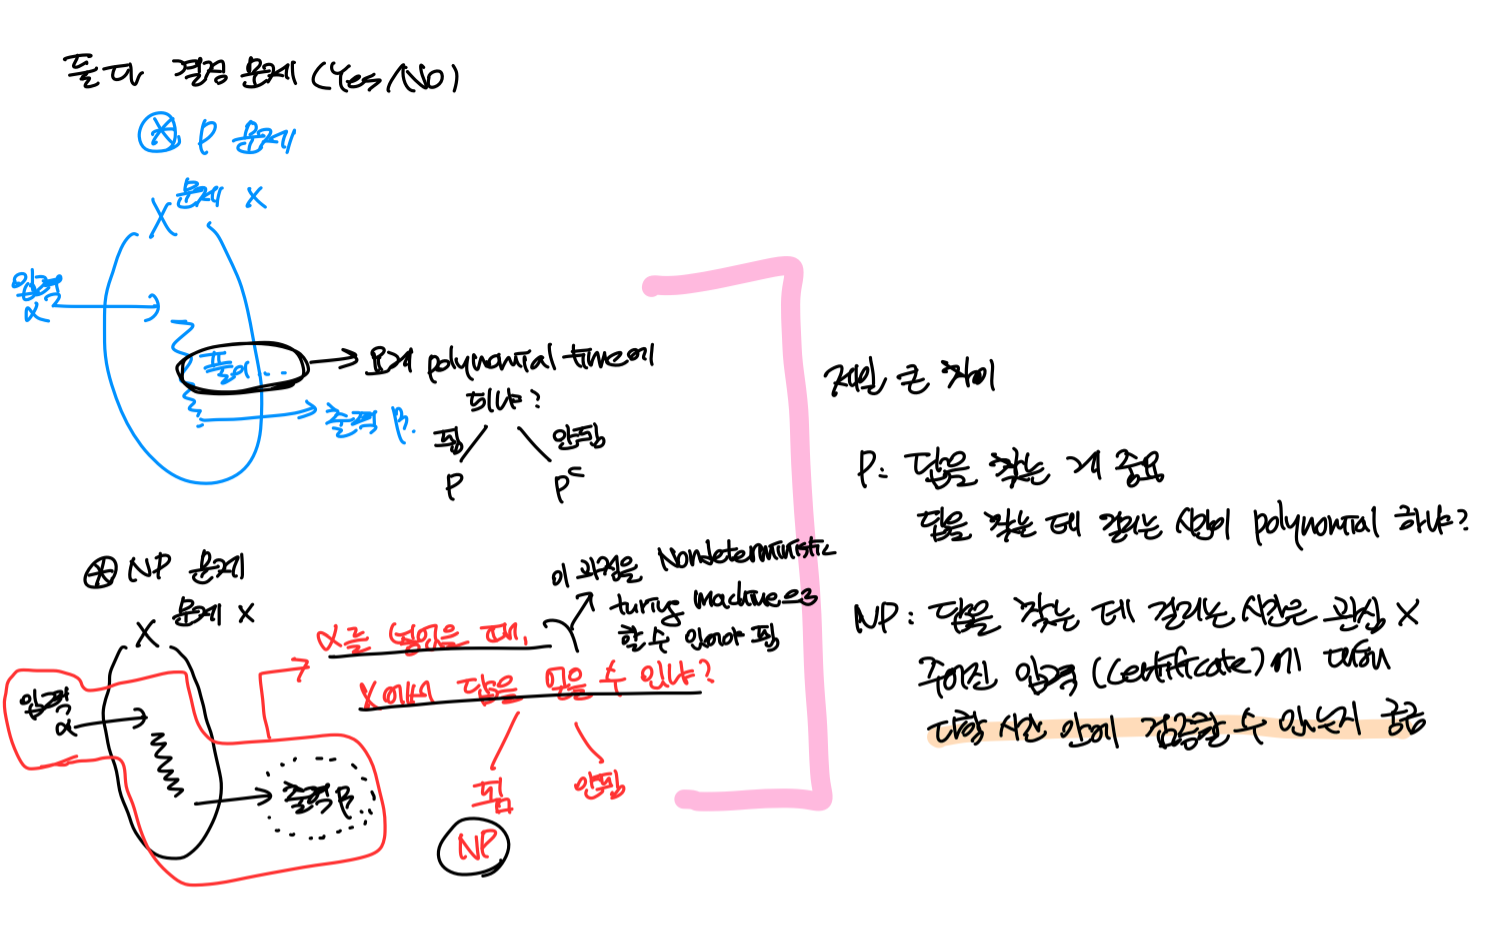 둘 다 결정 문제 (Yes/No)
⊛ P 문제
문제 X
X
입력
α
풀이...
요게 polynomial time에
되냐?
출력 β.
됨
안됨
P
Pᶜ
⊛ NP 문제
문제 X
X
입력
α
출력 β
α를 넣었을 때,
X에서 답을 얻을 수 있냐?
이 과정을 Nondeterministic
turing machine으로
할 수 있어야 됨
됨
안됨
NP
제일 큰 차이
P: 답을 찾는 게 중요
답을 찾는 데 걸리는 시간이 polynomial 하냐?
NP: 답을 찾는 데 걸리는 시간은 관심 X
주어진 입력 (certificate)에 대해
다항 시간 안에 검증할 수 있는지 궁금